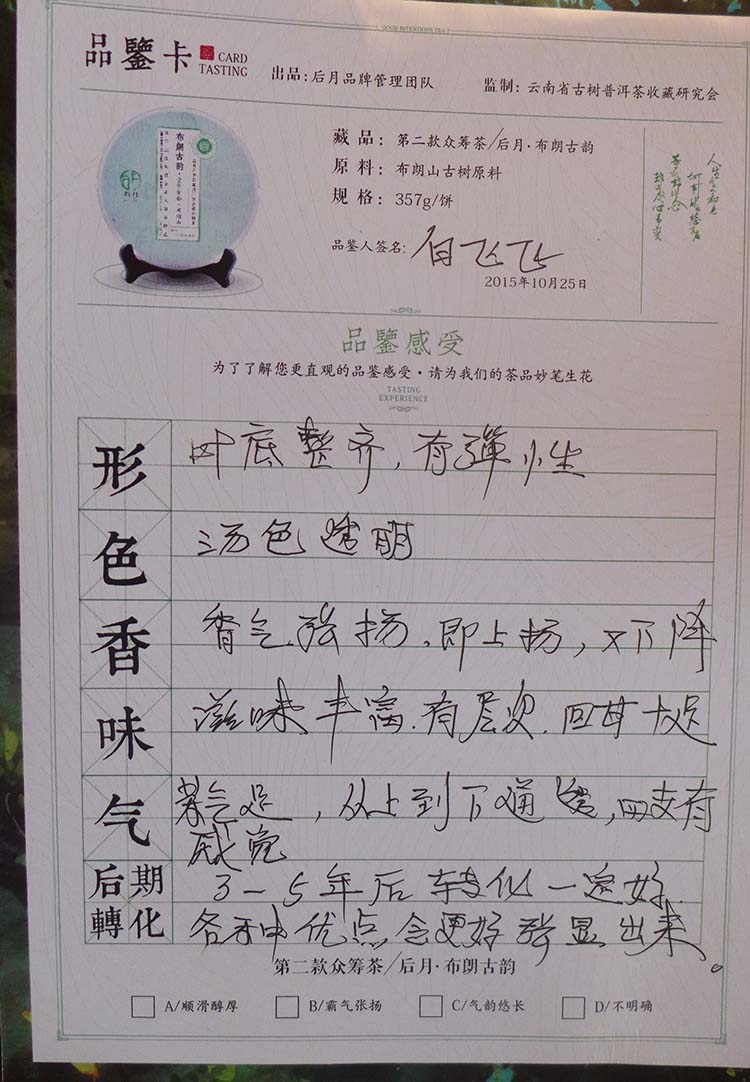 GOOD INTENTIONS TEA
品鑒卡 CARD
TASTING
出品：后月品牌管理团队
监制：云南省古树普洱茶收藏研究会
布朗古韵
藏品：第二款众筹茶/后月·布朗古韵
原料：布朗山古树原料
规格：357g/饼
品鉴人签名：白飞飞
2015年10月25日
品鑒感受
为了了解您更直观的品鉴感受·请为我们的茶品妙笔生花
TASTING
EXPERIENCE
形 叶底整齐，有彈性
色 汤色透明
香 香气张扬，即上扬，又下降
味 滋味丰富．有层次．回甘十足
气 茶气足，从上到下通透，四支有
感觉
后期 3-5年后转化一定好．
轉化 各种优点会更好张显出来。
第二款众筹茶/后月·布朗古韵
A/顺滑醇厚
B/霸气张扬
C/气韵悠长
D/不明确